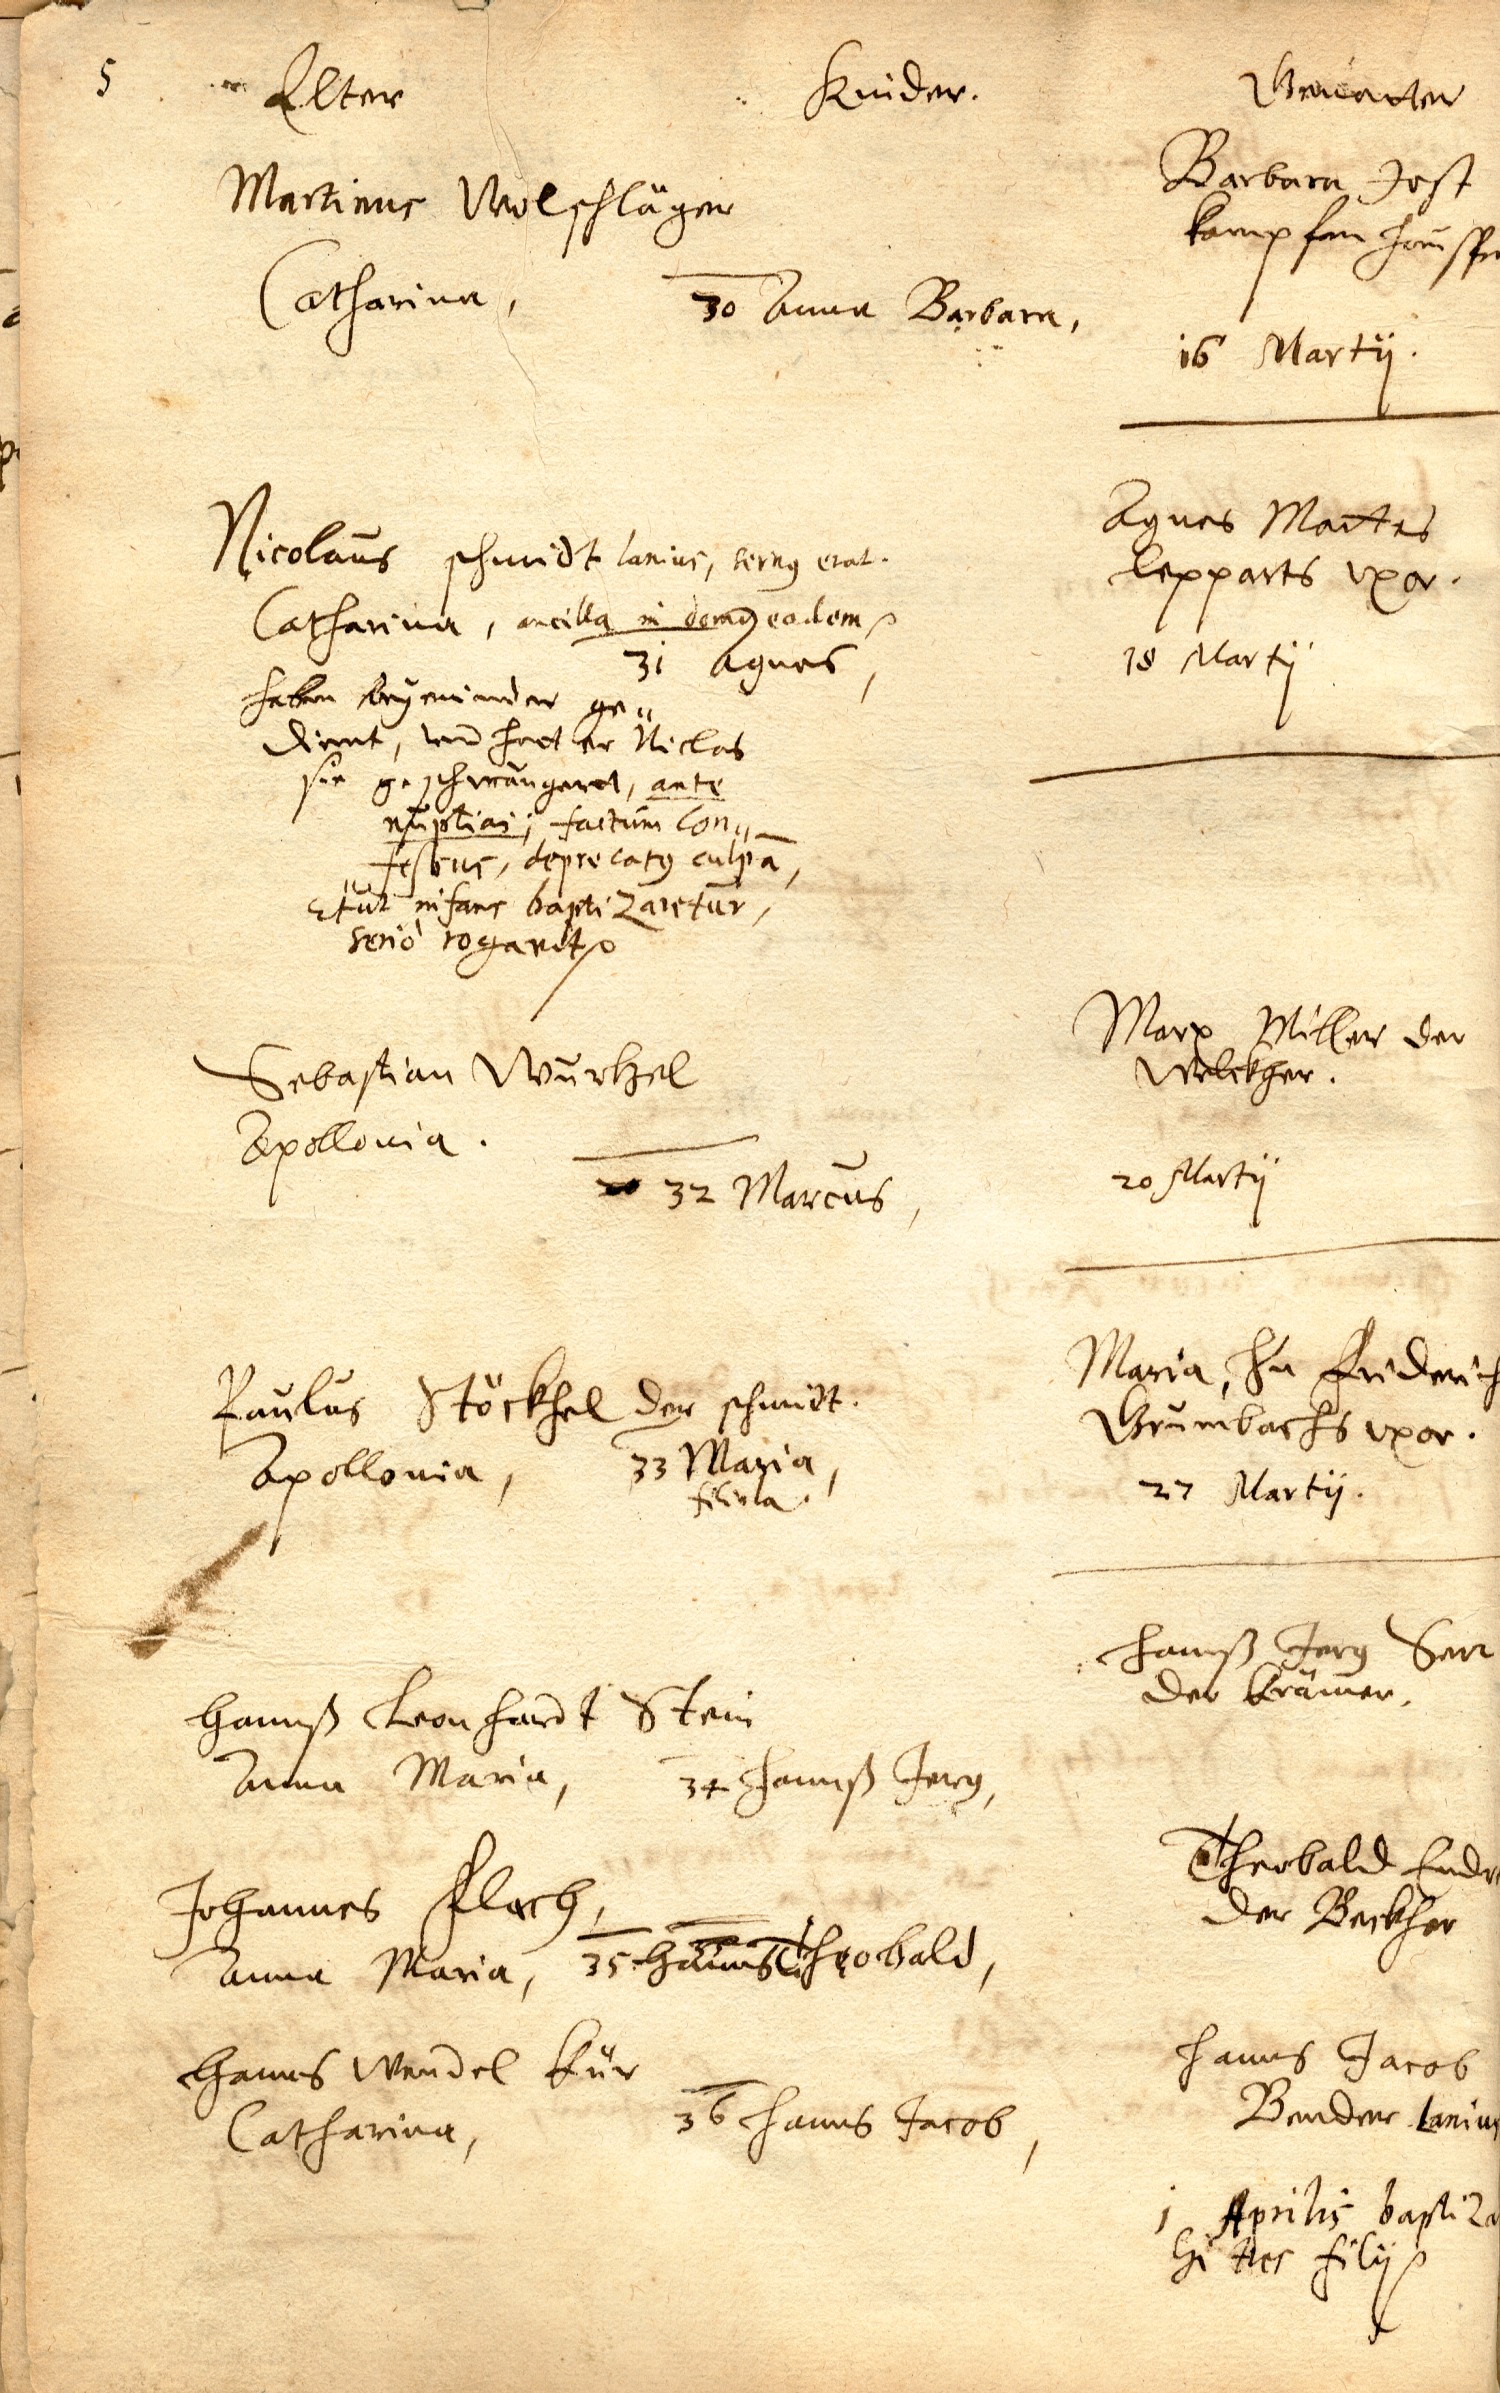 5 Elter Kinder. Gevatter
Martinus Wolschläger
Catharina, 30 Anna Barbara,
Barbara Jost
16 Martij.
Nicolaus schmidt lanius, servus erat.
Catharina, ancilla in domo eodem
31 Agnes,
haben beyeinander ge„
dient, und hat er Niclas
sie geschwängert, ante
nuptias; factum con„
„fessus, deprecatus culpā,
et ut infans baptizaretur,
serio rogavit
Agnes Martes
Lepparts uxor.
18 Martij
Sebastian Wurtzel
Apollonia.
32 Marcus,
Marx Miller der
20 Martij
Paulus Stöckhel der schmidt.
Apollonia, 33 Maria,
filiola.
Maria, Hn Friderich
Grumbachs uxor.
27 Martij.
Hannß Leonhardt Stein
Anna Maria, 34 Hannß Jerg,
Hannß Jerg
der Krämer.
Johannes Flach,
Anna Maria, 35 Hanns Theobald,
Theobald
der Beckher
Hanns Wendel Kür
Catharina, 36 Hanns Jacob,
Hanns Jacob
Bender lanius
1 Aprilis baptiza
hi tres filij